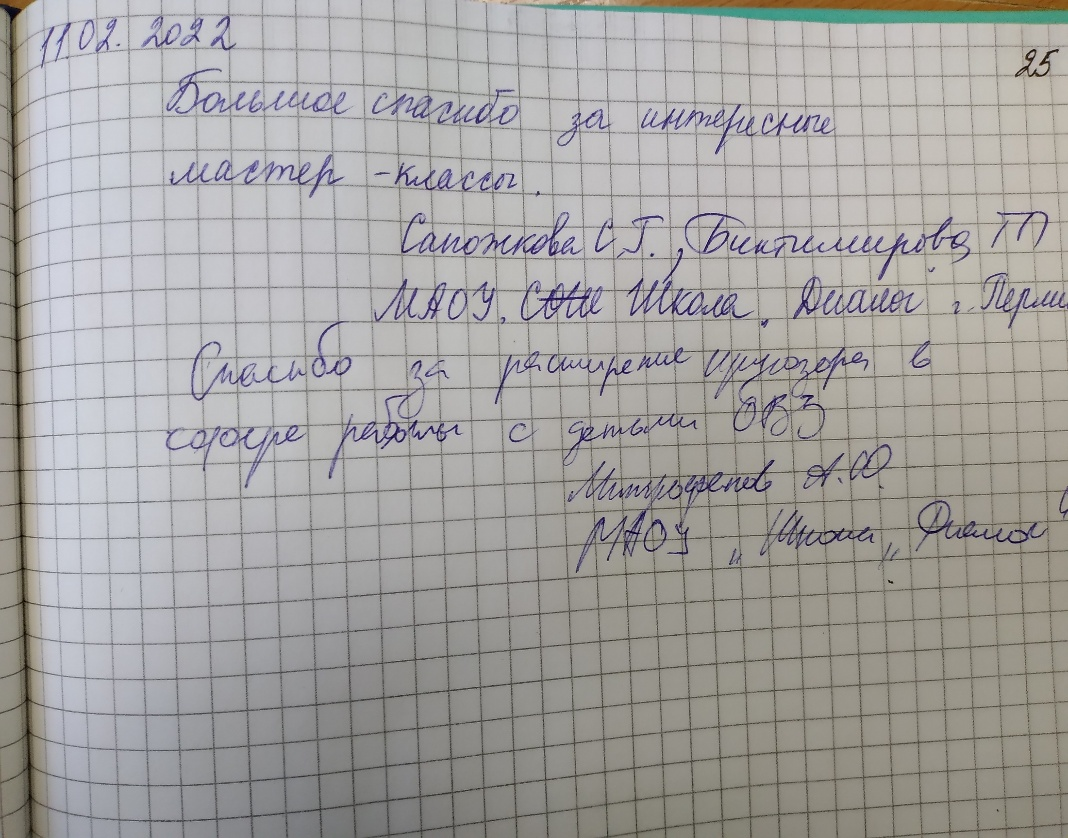 11.02.2022
25
Большое спасибо за интересные
мастер-классы.
Сапожкова С.Г., Биктимирова ТП
МАОУ, Школа „Диалог" г. Перми
Спасибо за расширение кругозора в
сфере работы с детьми ОВЗ
Митрофанов А.Ю.
МАОУ „Школа „Диалог"